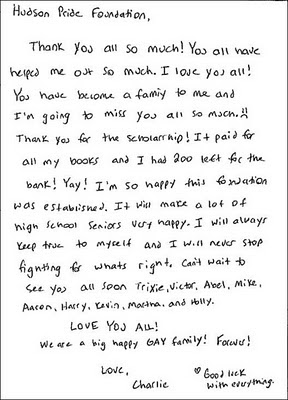 Hudson Pride Foundation,
Thank you all so much! You all have
helped me out so much. I love you all!
You have become a famiy to me and
I'm going to miss you all so much.
Thank you for the scholarship! It paid for
all my books and I had 200 left for the
bank! Yay! I'm so happy this foundation
was established. It will make a lot of
high school seniors very happy. I will always
keep true to myself and I will never stop
fighting for whats right. Can't wait to
see you all soon Trixie, Victor, Abel, Mike,
Aaron, Harry, Kevin, Martha, and Holly.
LOVE YOU ALL!
We are a big happy GAY family! Forever!
Love,
Charlie
♡ Good luck
with everything.